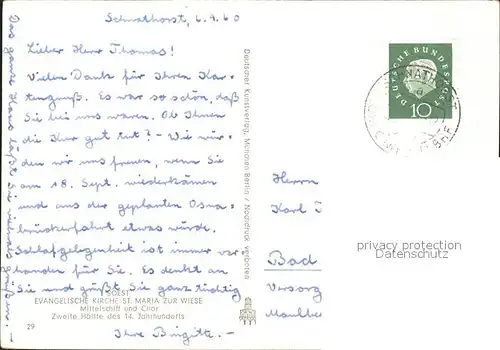 Schnathorst, 6.9.60
Lieber Herr Thomas!
Vielen Dank für Ihren Kar-
tengruß. Es war so schön, daß
Sie bei uns waren. Ob Ihnen
die Kur gut tut? - Wie wür-
den wir uns freuen, wenn Sie
am 18. Sept. wiederkämen
und aus der geplanten Osna-
brückerfahrt etwas würde.
Schlafgelegenheit ist immer vor-
handen für Sie. Es denkt an
Sie und grüßt Sie ganz tüchtig
Ihre Birgitte. -
Das ganze Haus läßt Sie vielmals grüßen! -
SOEST
EVANGELISCHE KIRCHE ST. MARIA ZUR WIESE
Mittelschiff und Chor
Zweite Hälfte des 14. Jahrhunderts
29
Deutscher Kunstverlag, München Berlin / Nachdruck verboten
DEUTSCHE BUNDESPOST
10
Herrn
Karl
Bad
Versorg
privacy protection
Datenschutz